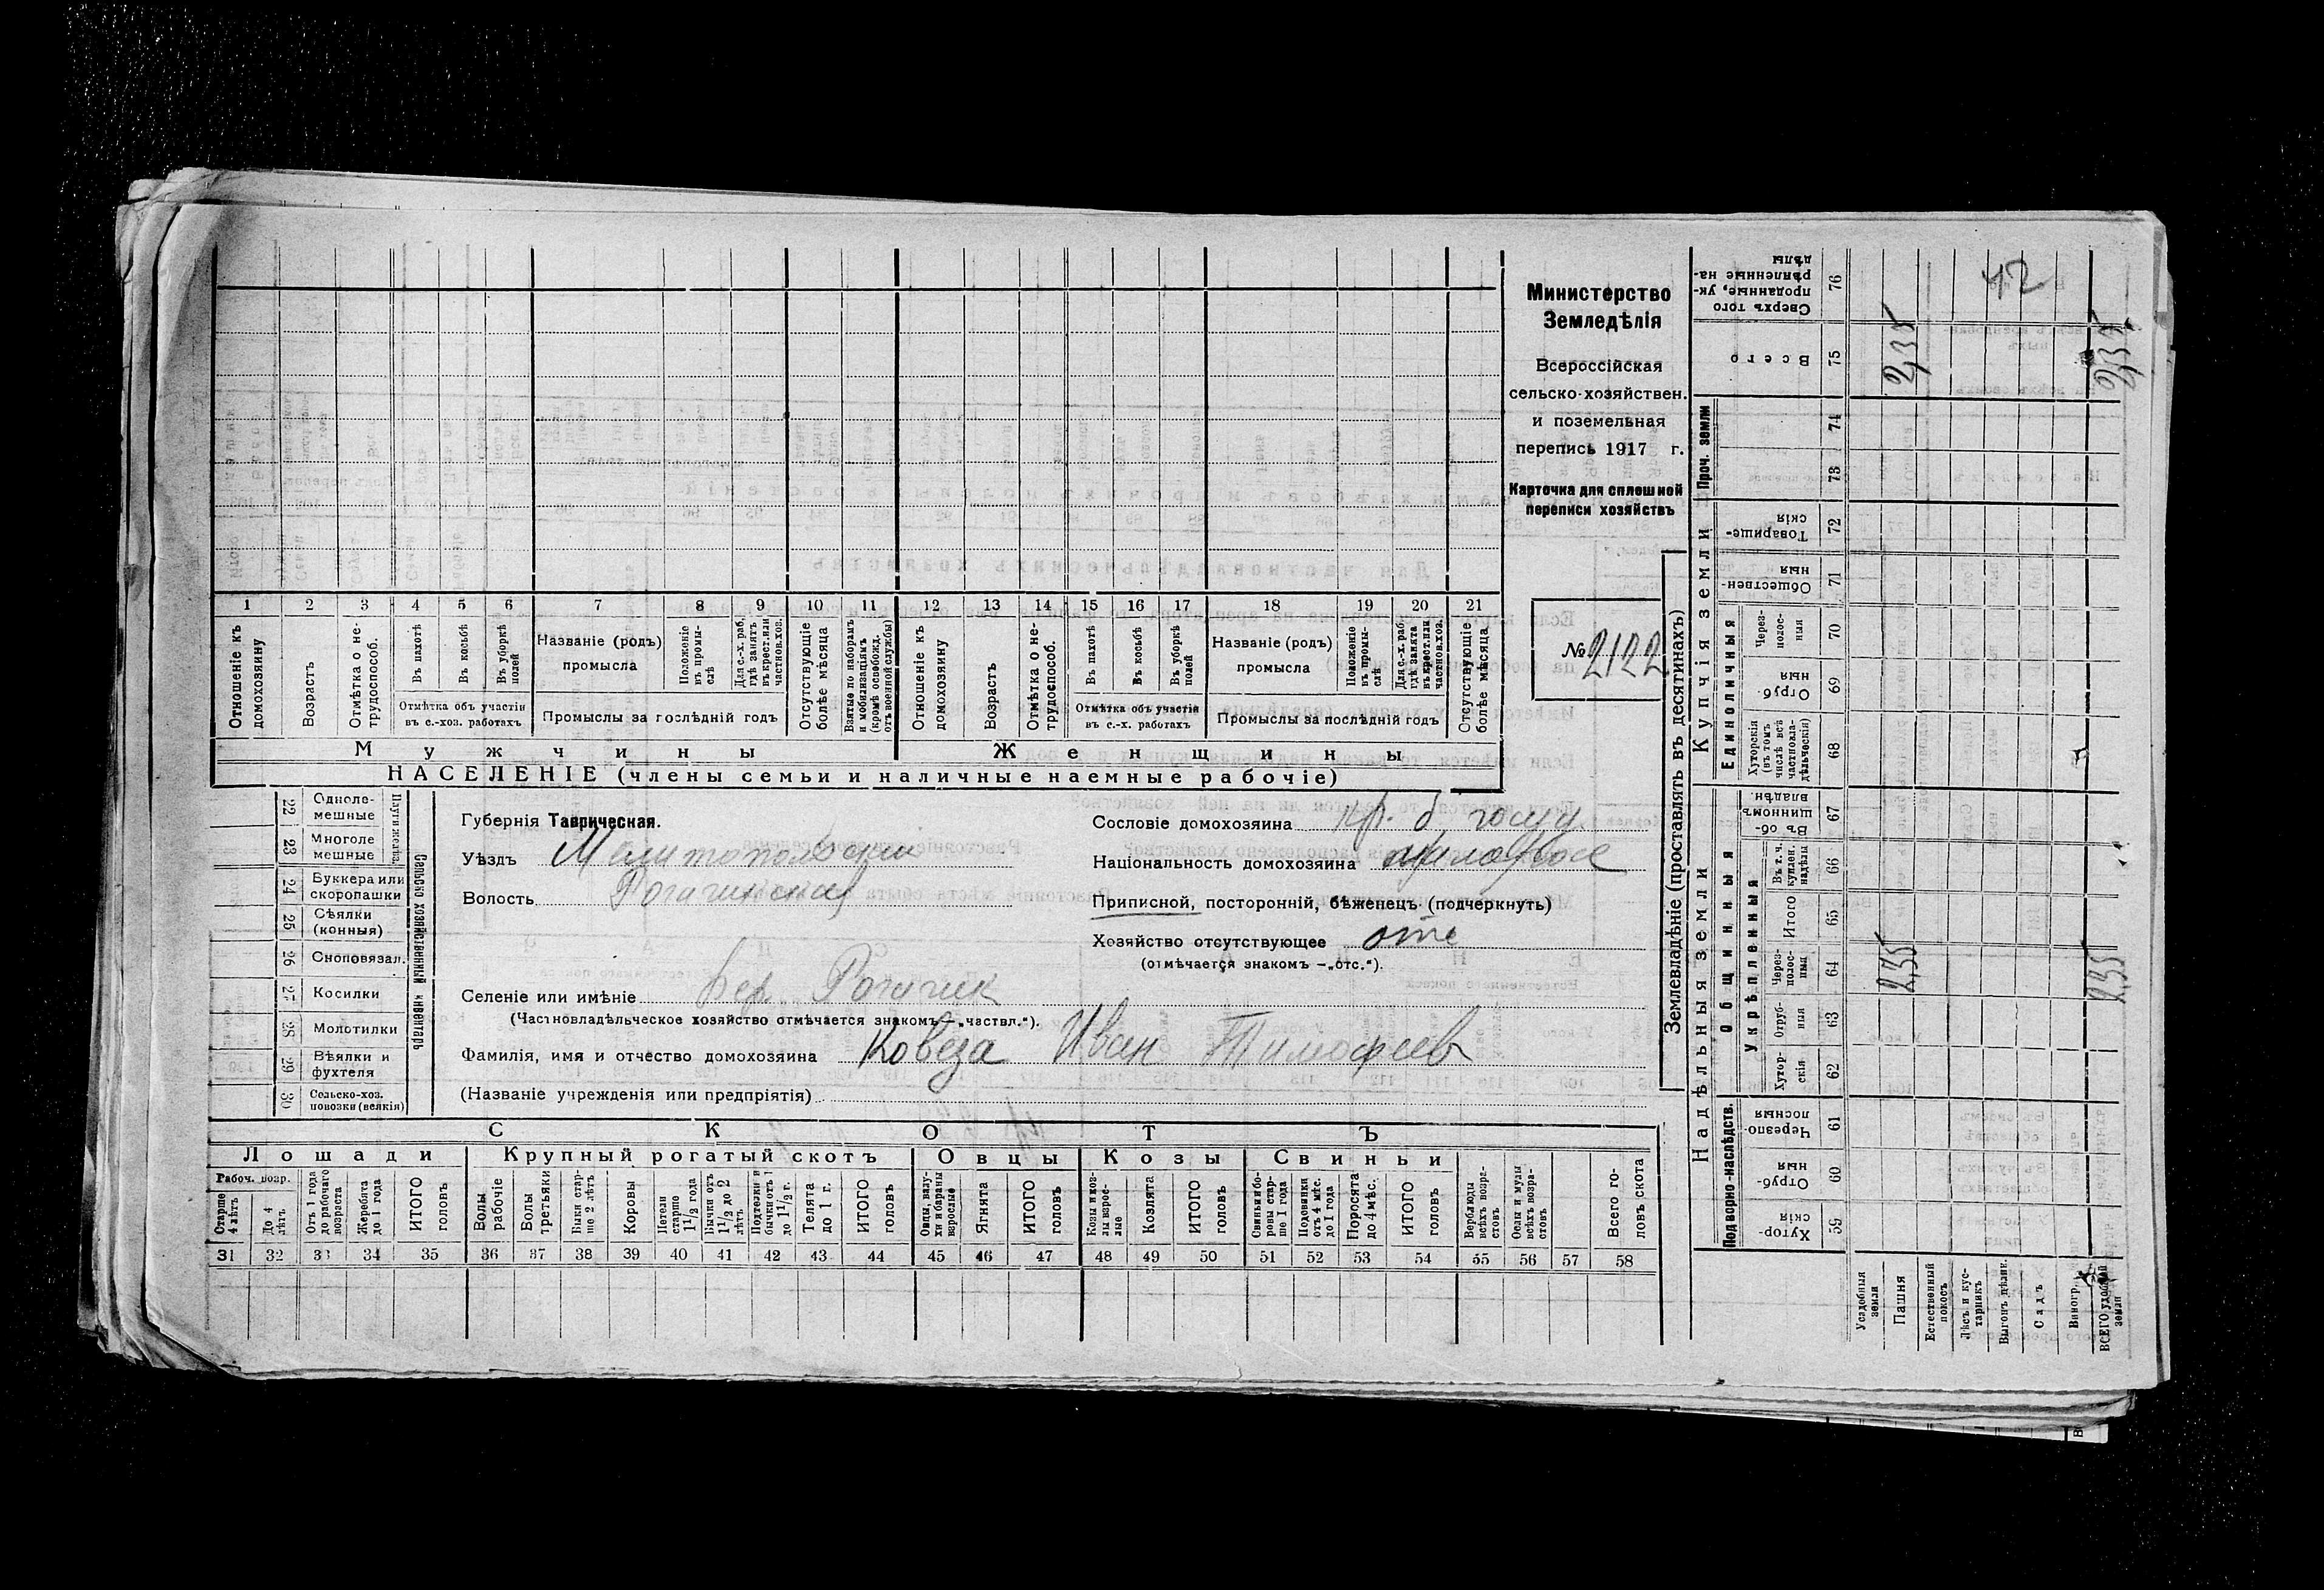 Министерство
Земледѣлія
Всероссійская
сельско-хозяйствен.
и поземельная
перепись 1917 г.
Карточка для сплошной
переписи хозяйствъ
№ 2122
1 2 3 4 5 6 7 8 9 10 11 12 13 14 15 16 17 18 19 20 21
Отношеніе къ домохозяину
Возрастъ
Отмѣтка о не-трудоспособ.
Въ пахотѣ
Въ косьбѣ
Въ уборкѣ полей
Отмѣтка объ участіи въ с.-хоз. работахъ
Названіе (родъ) промысла
Положеніе въ промы-слѣ
Для с.-х. раб. гдѣ занятъ въ крест. или частнов. хоз.
Промыслы за послѣдній годъ
Отсутствующіе болѣе мѣсяца
Взятые по наборамъ и мобилизаціямъ (кромѣ освобожд. отъ военной службы)
Отношеніе къ домохозяину
Возрастъ
Отмѣтка о не-трудоспособ.
Въ пахотѣ
Въ косьбѣ
Въ уборкѣ полей
Отмѣтка объ участіи въ с.-х. работахъ
Названіе (родъ) промысла
Положеніе въ промы-слѣ
Для с.-х. раб. гдѣ занята въ крест. или частнов. хоз.
Промыслы за послѣдній годъ
Отсутствующіе болѣе мѣсяца
Мужчины Женщины
НАСЕЛЕНІЕ (члены семьи и наличные наемные рабочіе)
22 Одноле-мешные
23 Многоле мешные
24 Буккера или скоропашки
25 Сѣялки (конныя)
26 Сноповязал.
27 Косилки
28 Молотилки
29 Вѣялки и фухтеля
30 Сельско-хоз. повозки (всякія)
Плуги желѣз.
Сельско хозяйственный инвентарь
Губернія Таврическая.
Уѣздъ Мелитопольскій
Волость Рогачинская
Селеніе или имѣніе Вер. Рогачик
(Частновладѣльческое хозяйство отмѣчается знакомъ — „частвл.“).
Фамилія, имя и отчество домохозяина Ковеза Иван Тимофеев
(Названіе учрежденія или предпріятія)
Сословіе домохозяина Кр. б. госуд.
Національность домохозяина
Приписной, посторонній, бѣженецъ (подчеркнуть)
Хозяйство отсутствующее отс
(отмѣчается знакомъ — „отс.“).
СКОТЪ
Лошади Крупный рогатый скотъ Овцы Козы Свиньи
Рабоч. возр.
Старше 4 лѣтъ
До 4 лѣтъ
Отъ 1 года до рабочаго возраста
Жеребята до 1 года
ИТОГО головъ
Волы рабочіе
Волы третьяки
Быки стар-ше 2 лѣтъ
Коровы
Нетели старше 1 1/2 года
Бычки отъ 1 1/2 до 2 лѣтъ
Подтелки и бычки отъ 1 до 1 1/2 г.
Телята до 1 г.
ИТОГО головъ
Овцы, валу-хи и бараны взрослые
Ягнята
ИТОГО головъ
Козы и коз-лы взрос-лые
Козлята
ИТОГО головъ
Свиньи и бо-ровы стар-ше 1 года
Подсвинки отъ 4 мѣс. до 1 года
Поросята до 4 мѣс.
ИТОГО головъ
Верблюды всѣхъ возра-стовъ
Ослы и мулы всѣхъ возра-стовъ
Всего го-ловъ скота
31 32 33 34 35 36 37 38 39 40 41 42 43 44 45 46 47 48 49 50 51 52 53 54 55 56 57 58
Землевладѣніе (проставлять въ десятинахъ)
Надѣльныя земли Купчія земли Проч. земли
Подворно-наслѣдств. Общинныя Единоличныя
Укрѣпленныя
Хутор-скія 59
Отруб-ныя 60
Черезпо-лосныя 61
Хутор-скія 62
Отруб-ныя 63
Через-полос-ныя 64
Итого 65
Въ т. ч. куплен. надѣлы 66
Въ об-щинномъ владѣн. 67
Хуторскія (въ томъ числѣ всѣ частновла-дѣльческія) 68
Отруб-ныя 69
Через-полос-ныя 70
Обществен-ныя 71
Товарище-скія 72
73
74
Всего 75
Сверхъ того проданные, ук-рѣпленные на-дѣлы 76
Усадебныя земли
Пашня 2,35 2,35
Естественный покосъ
Лѣсъ и кус-тарникъ
Выгонъ дѣлик.
Садъ
Виногр.
ВСЕГО удобной земли 2,35 2,35
42